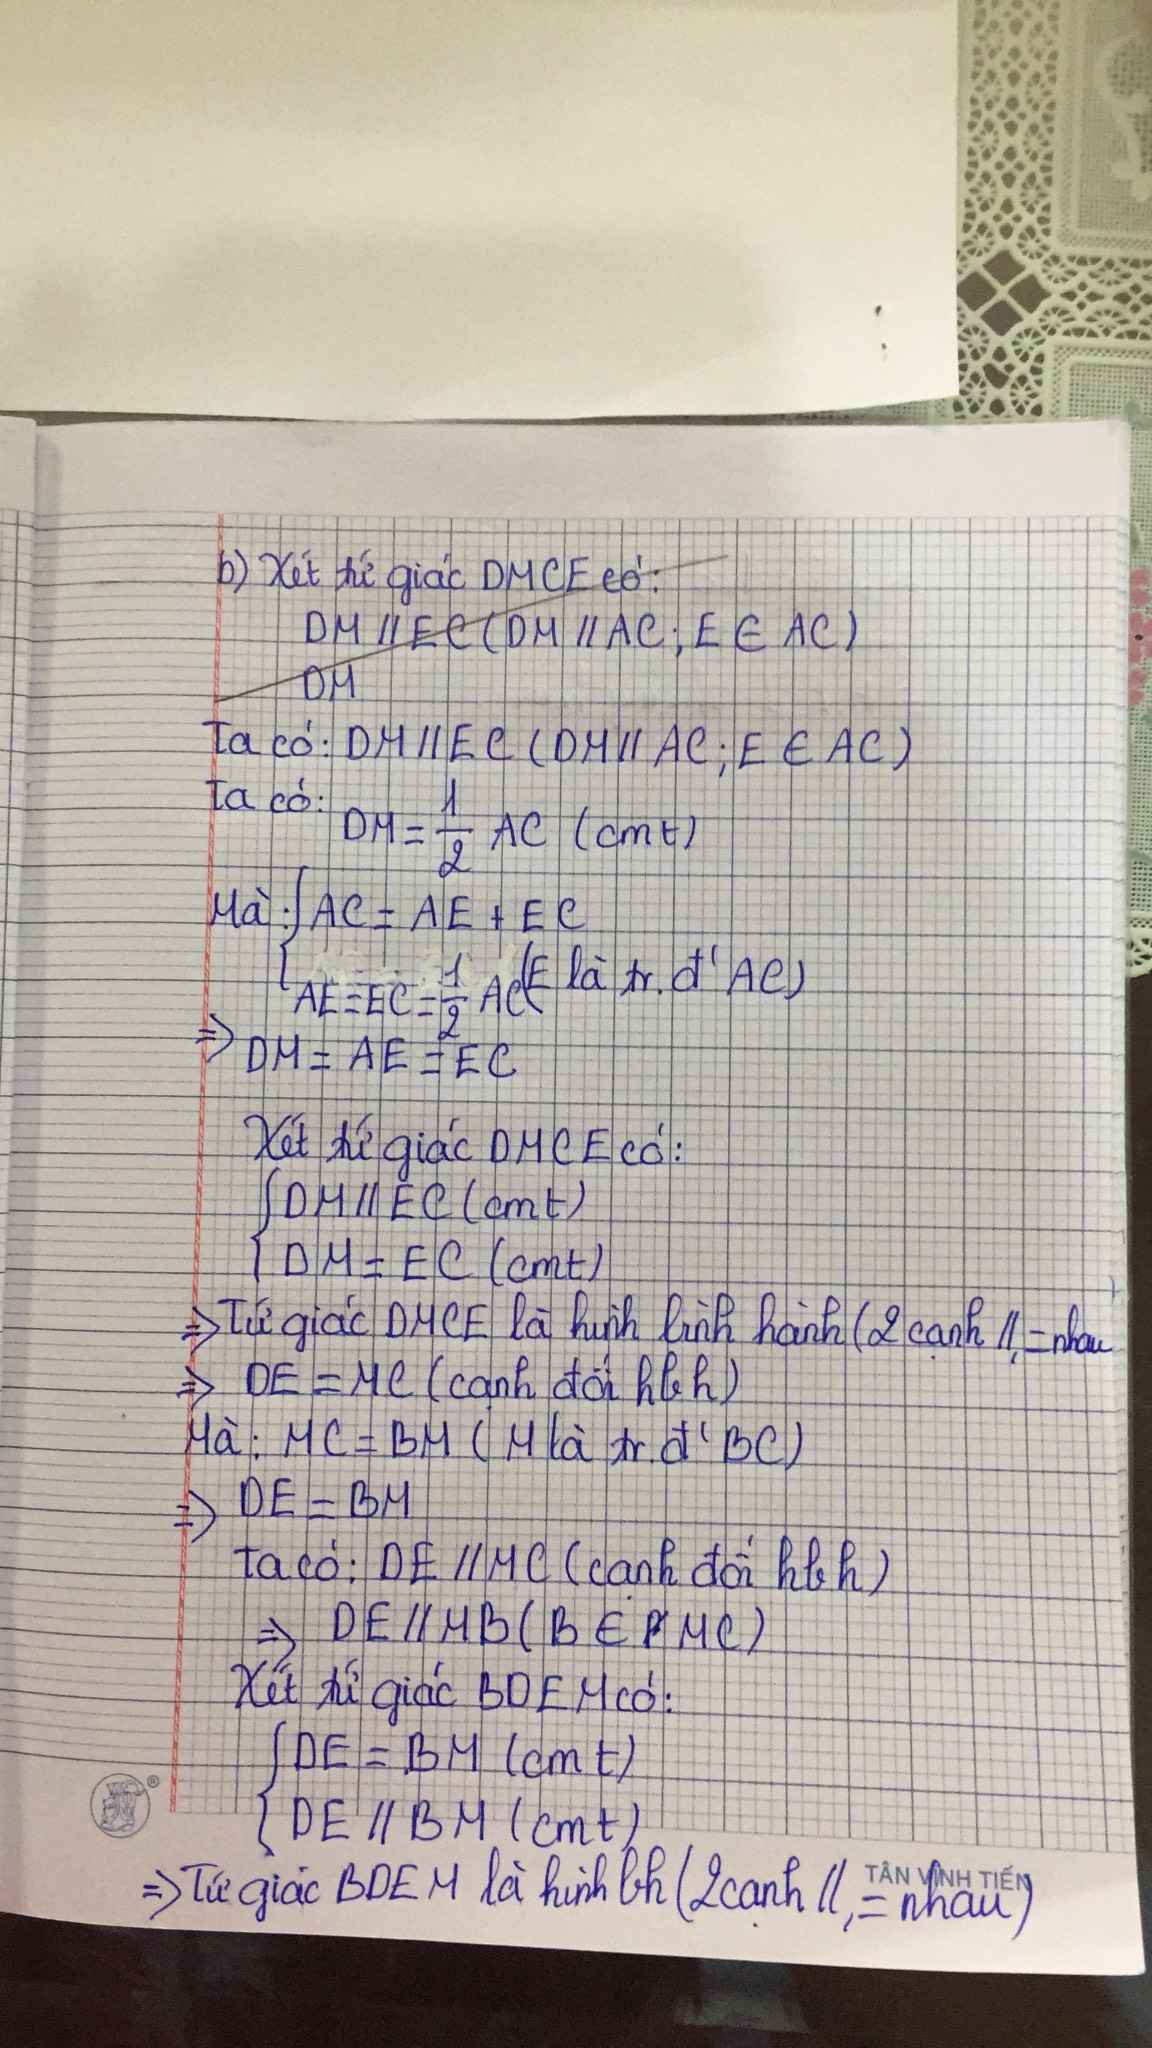 b) Xét tứ giác DMCE có:
DM // EC (DM // AC; E ∈ AC)
DM
Ta có: DM // EC (DM // AC; E ∈ AC)
Ta có:
DM = 1/2 AC (cmt)
Mà: { AC = AE + EC
AE = EC = 1/2 AC (E là tr.đ' AC)
=> DM = AE = EC
Xét tứ giác DMCE có:
{ DM // EC (cmt)
DM = EC (cmt)
=> Tứ giác DMCE là hình bình hành (2 cạnh //, = nhau
=> DE = MC (cạnh đối hbh)
Mà: MC = BM (M là tr.đ' BC)
=> DE = BM
Ta có: DE // MC (cạnh đối hbh)
=> DE // MB (B ∈ MC)
Xét tứ giác BDEM có:
{ DE = BM (cmt)
DE // BM (cmt)
TÂN VĨNH TIẾN
=> Tứ giác BDEM là hình bh (2 cạnh //, = nhau)